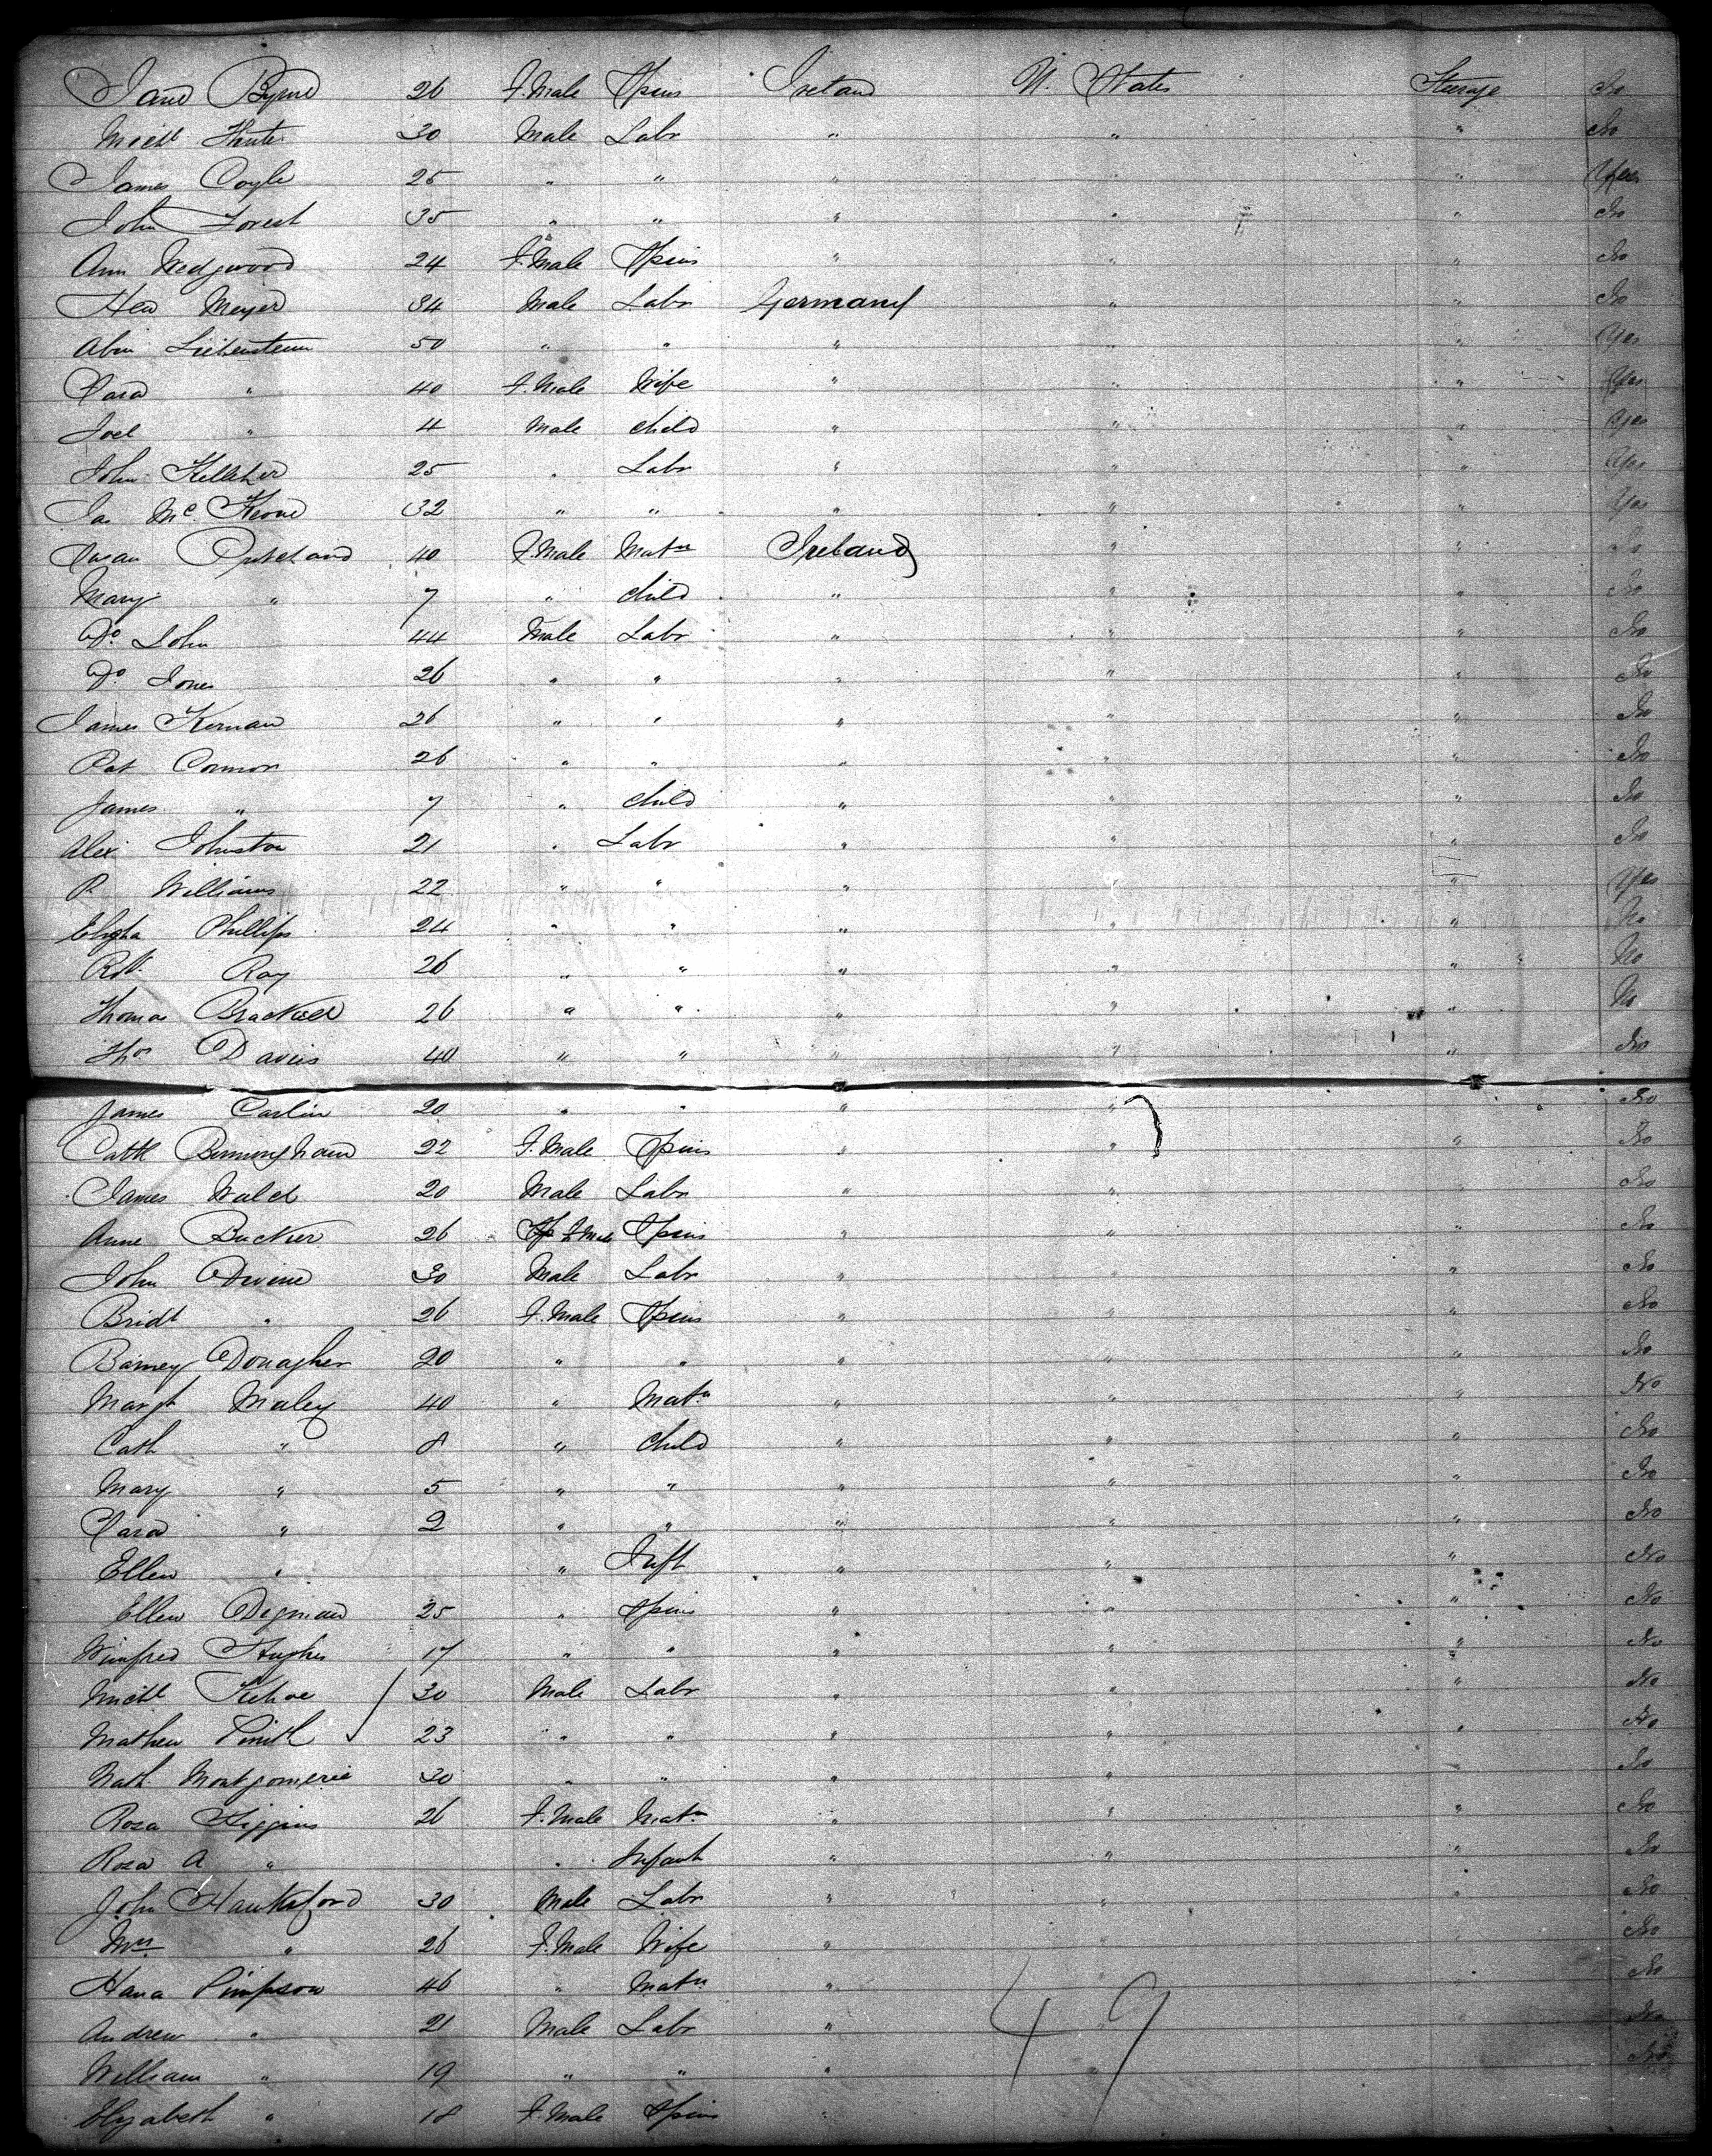 Jane Byrne 26 F.Male Spins Ireland U. States Steerage No
Michl 30 Male Labr " " " No
James Coyle 25 " " " " " Yes
John Forest 35 " " " " " No
Ann Wedgwood 24 F.Male Spins " " " No
Hen Meyer 34 Male Labr Germany " " No
Abm Liebenstein 50 " " " " " Yes
Sara " 40 F.Male Wife " " " Yes
Joel " 4 Male child " " " Yes
John Kelleher 25 " Labr " " " Yes
Jas McKeone 32 " " " " " Yes
Susan 40 F.Male Matn Ireland " " No
Mary " 7 " child " " " No
Do John 44 Male Labr " " " No
Do Jones 26 " " " " " No
James Kernan 26 " " " " " No
Pat Connor 26 " " " " " No
James " 7 " child " " " No
Alex Johnston 21 " Labr " " " No
R Williams 22 " " " " " Yes
Elizha Phillips 24 " " " " " No
Robt Ray 26 " " " " " No
Thomas Brackwell 26 " " " " " No
Thos Davis 40 " " " " " No
James Carlin 20 " " " " No
Cathe Birmingham 22 F.Male Spins " " " No
James Walch 20 Male Labr " " " No
Anne Bucker 26 F.Male Spins " " " No
John Devine 30 Male Labr " " " No
Bridt " 26 F.Male Spins " " " No
Barney Donagher 20 " " " " " No
Margt Maley 40 " Matn " " " No
Cath " 8 " child " " " No
Mary " 5 " " " " " No
Sara " 2 " " " " " No
Ellen " " Inft " " " No
Ellen Degnan 25 " Spins " " " No
Winifred Hughes 17 " " " " " No
Michl Kehoe 30 Male Labr " " " No
Mathew Smith 23 " " " " " No
Nath Montgomerie 30 " " " " " No
Rosa Higgins 26 F.Male Matn " " " No
Rosa A " " Infant " " " No
John Hanksford 30 Male Labr " " " No
Mrs " 26 F.Male Wife " No
Hana Simpson 46 " Matn " No
Andrew " 21 Male Labr " " No
William " 19 " " " " No
Elizabeth " 18 F.Male Spins "
49